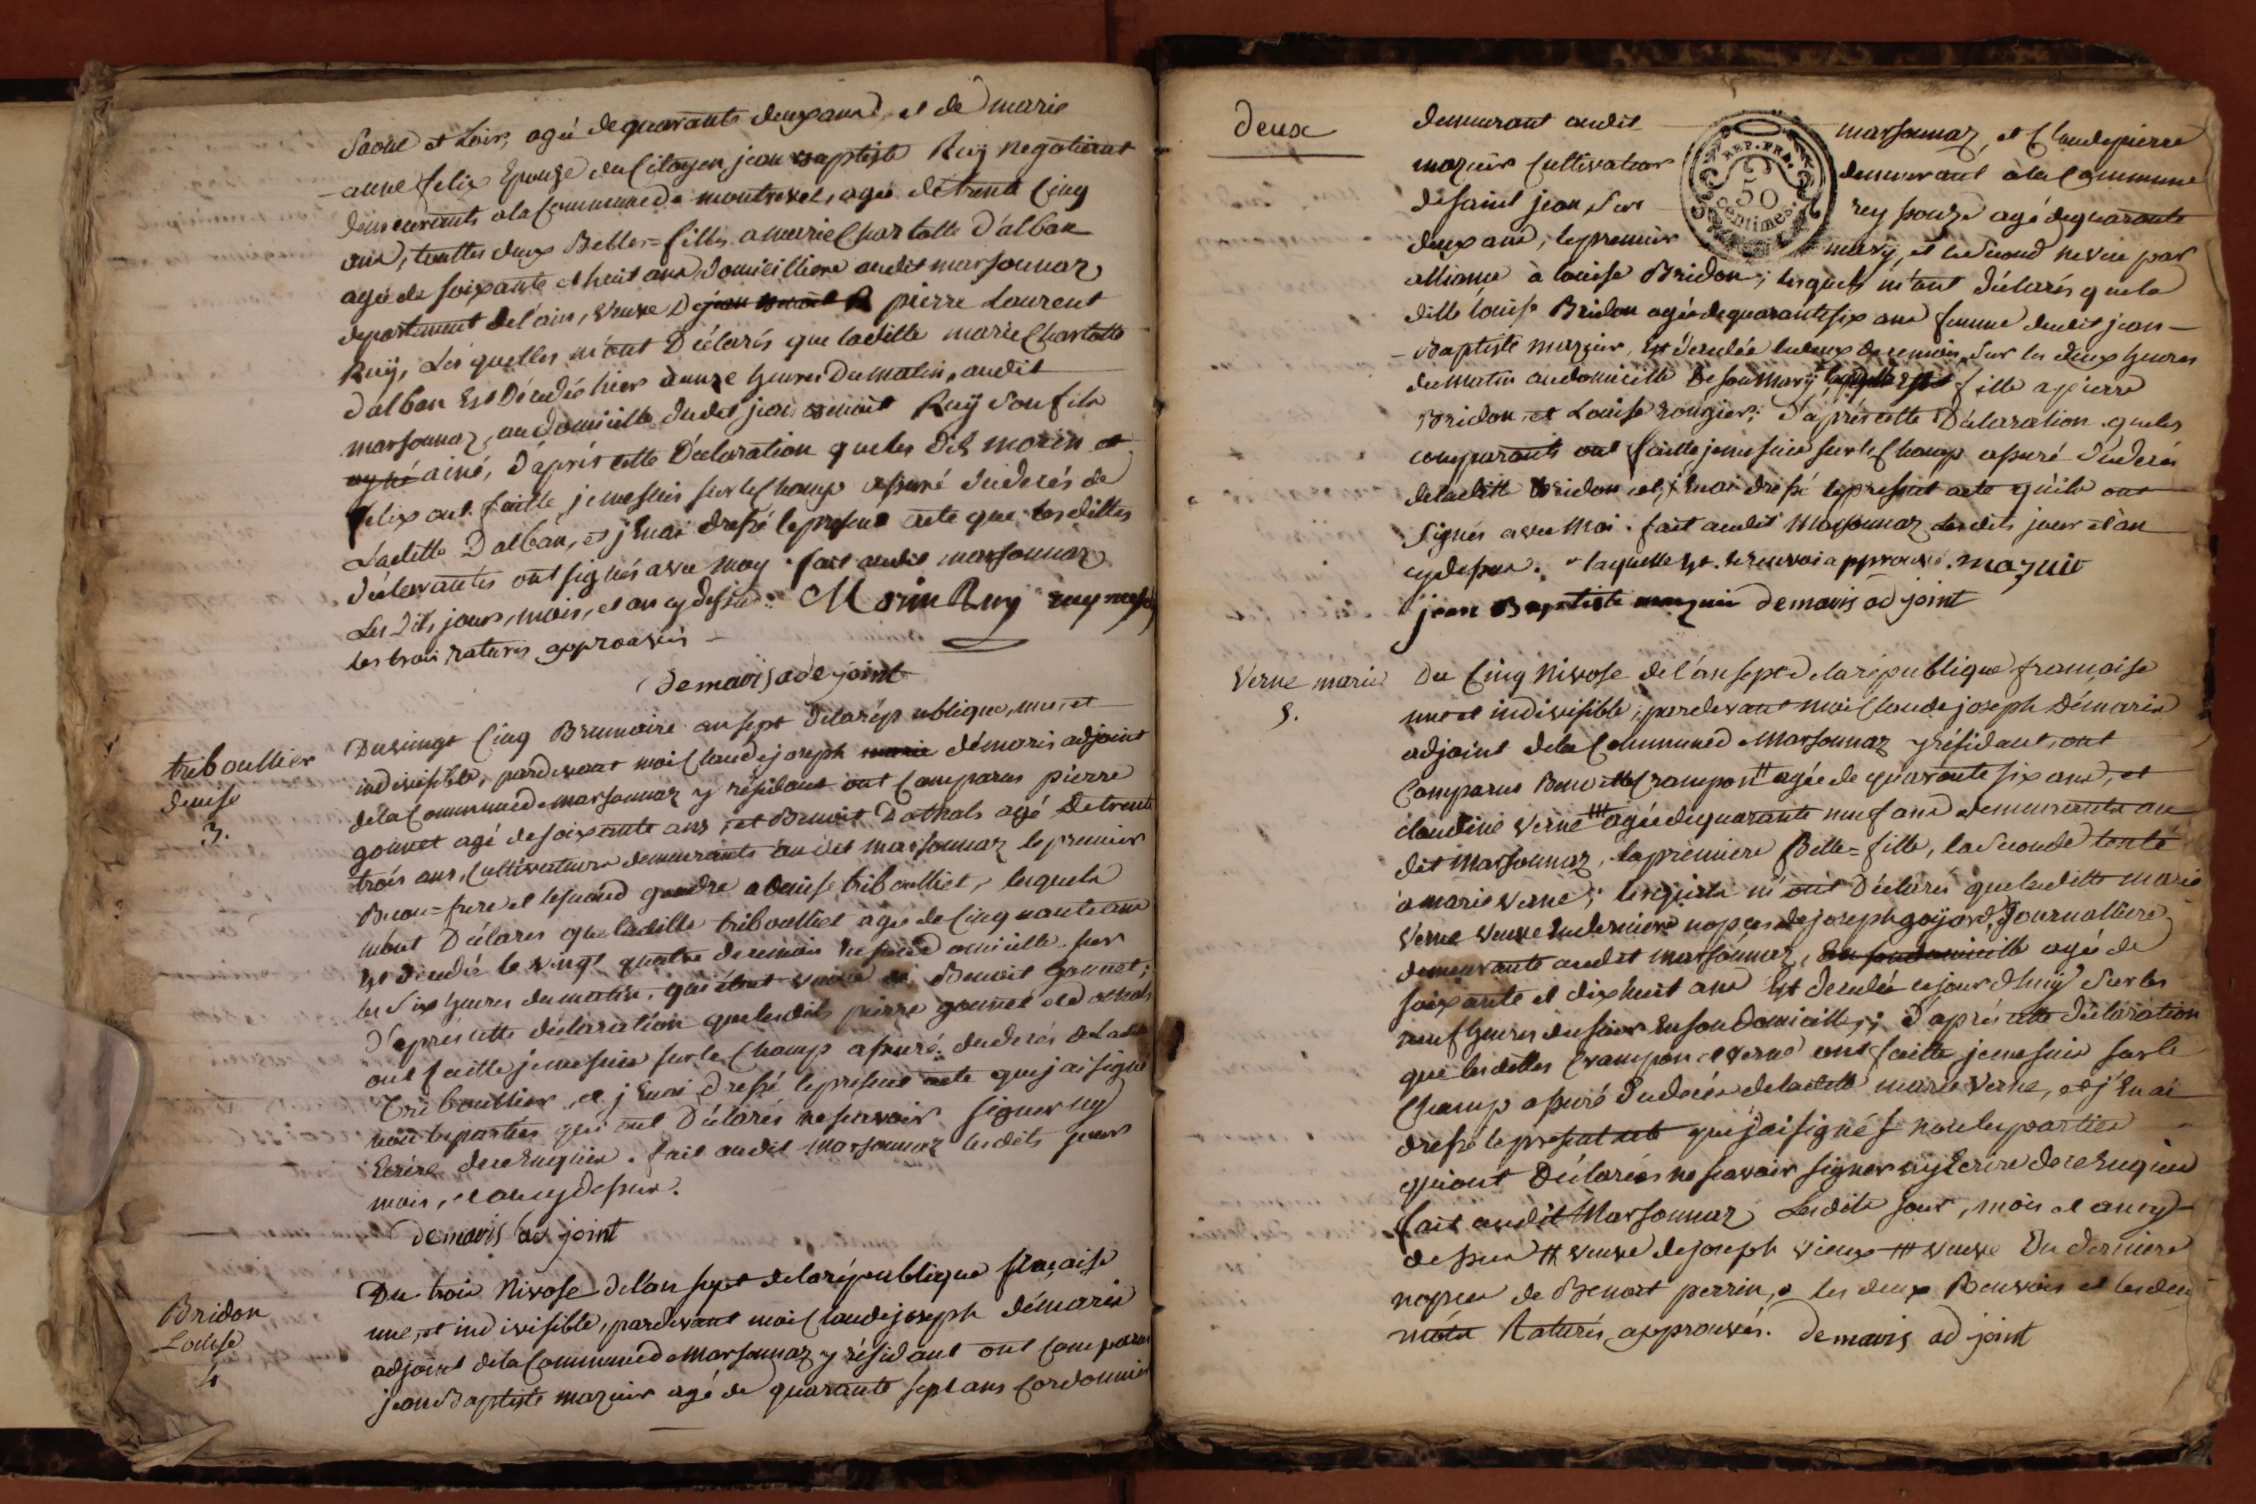 Saone et Loir, agé de quarante deux ans, et de marie
anne felix Epouze du Citoyen jean Baptiste Ruy negotiant
demeurants a la Commune de montrevel, agée de trente Cinq
ans, touttes deux Belles=filles a marie Charlotte D'alban
agée de soixante et huit ans domicilliere audit marsonnaz
departement de l'ain, veuve De jean benoit R pierre Laurent
Ruÿ, Lesquelles m'ont Déclarés que laditte marie Charlotte
dalban Est Décédée hier a onze heures du matin, audit
marsonnaz, au domicille dudit jean benoit Ruÿ son fils
ainé, D'après cette Déclaration que les dits morin et
felix ont faitte, je me suis sur le Champ assuré du decés de
Laditte Dalban, et j'Enai dressé le present acte que les dittes
déclarantes ont signés avec moy. fait audit marsonnaz
Les Dits jours, mois, et an cy dessus. Morin Ruy ruy
les trois ratures approuvés
Demaris adejoint
triboullier
denise
3.
Du vingt Cinq Brumaire an sept de la république, une, et
indivisible, pardevant moi Claude joseph marie démaris adjoint
de la Commune de marsonnaz y résidant ont Comparus pierre
gonnet agé de soixante ans, et Benoit Dathals agé De trente
trois ans, Cultivateurs demeurants audit marsonnaz le premier
Beau=frere et le second gendre a denise triboulliet, lesquels
m'ont Déclarés que laditte triboulliet agée de Cinquante ans
Est décédée le vingt quatre de ce mois En son domicille sur
les Six heures du matin, qui étoit veuve de Benoit Gonnet;
D'apres cette déclaration que lesdits pierre gonnet et dathals
ont faitte je me suis sur le Champ assuré du decés de Laditte
Triboullier, et j'Enai dressé le present acte que j'ai signé
non les parties qui ont Déclarés ne sçavoir signer ny
Ecrire de ce Enquis. fait audit marsonnaz lesdits jour
mois, et an cy dessus.
demaris ad joint
Bridon
Louise
4
Du trois Nivose de l'an sept de la république française
une, et indivisible, pardevant moi Claude joseph démaris
adjoint de la Commune de marsonnaz y résidant ont Comparus
jean Baptiste mazuir agé de quarante sept ans Cordonnier
deux
demeurant audit marsonnaz, et Claude pierre
mazuir Cultivateur demeurant à la Commune
de saint jean sur reyssouze agé de quarante
deux ans, le premier mary, et le second neveu par
REP. FRA.
50
centimes.
alliance à louise Bridon; lesquels m'ont déclarés que la
ditte louise Bridon agée de quarante six ans femme dudit jean
Baptiste mazuir, est décédée le deux de ce mois sur les deux heures
du matin au domicille de son mary laquelle Est fille a pierre
Bridon et Louise rongier: D'après cette Déclaration que les
comparants ont faitte je me suis sur le Champ assuré du decés
de laditte Bridon, et j'Enai dressé le present acte qu'ils ont
Signés avec moi. fait audit marsonnaz lesdits jour et an
cy dessus. laquelle Est. le renvoi approuvé. mazuir
jean Baptiste mazuir demaris ad joint
Verne marie
5.
Du Cinq Nivose de l'an sept de la république française
une et indivisible, pardevant moi Claude joseph Démaris
adjoint de la Commune de Marsonnaz y résidant, ont
Comparus Benoitte Crampon # agée de quarante six ans, et
claudine Verne ## agée de quarante neuf ans demeurants au
dit Marsonnaz, la premiere Belle=fille, la seconde tante
a marie Verne; lesquels m'ont Déclarés que laditte marie
Verne veuve En derniere nopces de joseph goyard, Journalliere
demeurante audit marsonnaz, En son domicille agée de
soixante et dix huit ans Est decédée ce jour d'huÿ sur les
neuf heures du soir En son Domicille; D'après cette Déclaration
que lesdittes Crampon et Verne ont faitte je me suis sur le
Champ assuré du decés de laditte marie Verne, et j'Enai
dressé le present acte que j'ai signés non les parties
qui ont Déclarées ne sçavoir signer ny Ecrire de ce Enquis
fait audit Marsonnaz Lesdits jour, mois et an cy
dessus # veuve de joseph vieux ## veuve En derniere
nopces de Benoit perrin, les deux Renvois et les deux
mots Raturés, approuvés. demaris ad joint